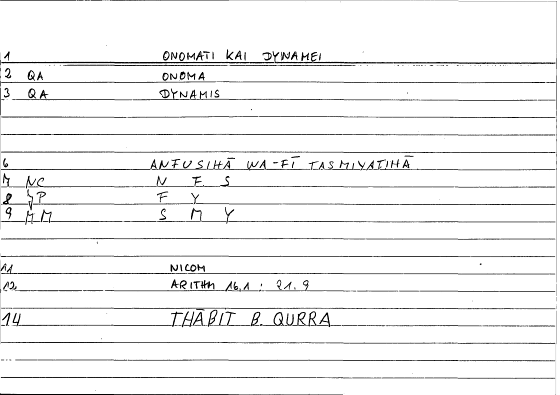 1 ONOMATI KAI DYNAMEI
2 QA ONOMA
3 QA DYNAMIS
6 ANFUSIHĀ WA-FĪ TASMIYATIHĀ
7 NC N F S
8 SP F Y
9 MM S M Y
11 NICOM
12 ARITHM 16,1 : 21.9
14 THĀBIT B. QURRA